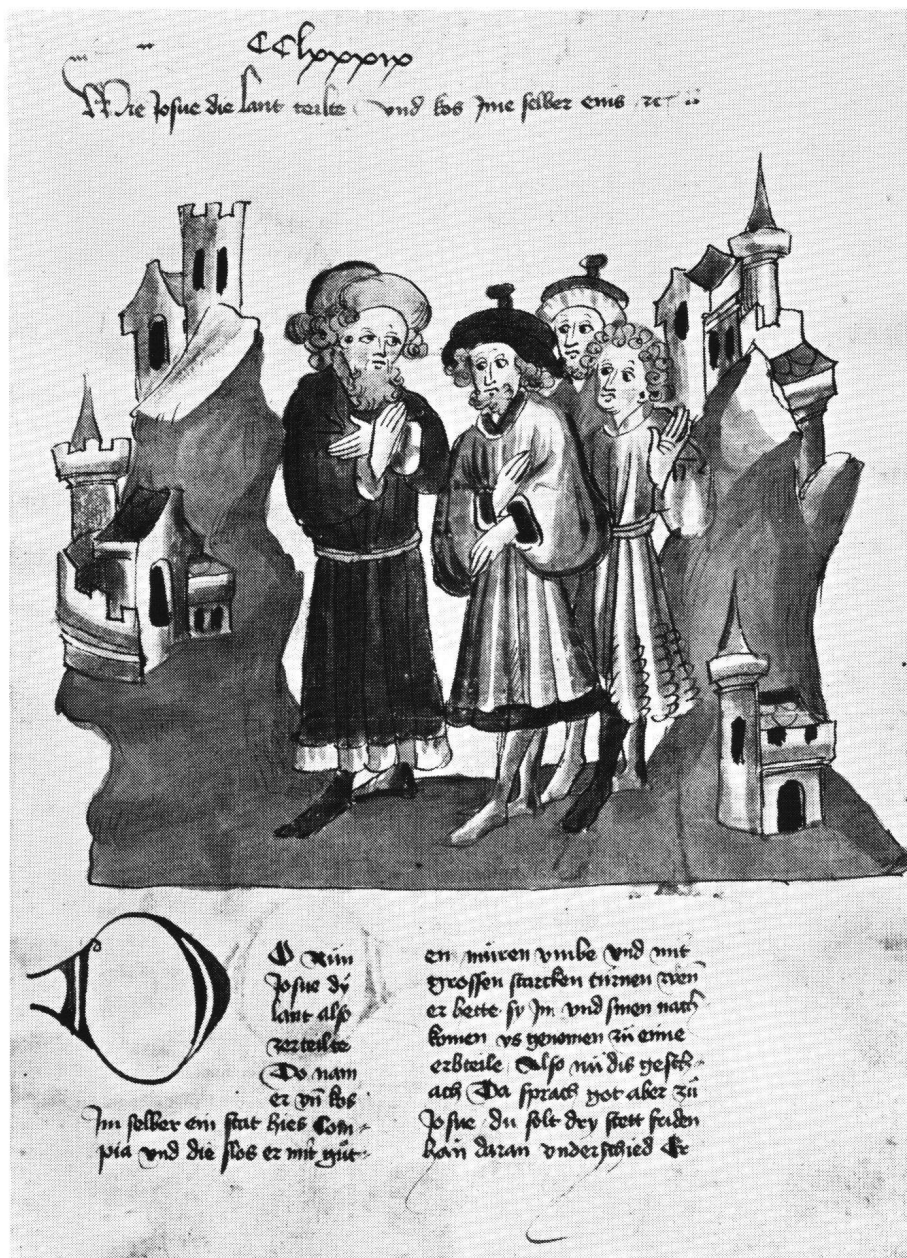 CClxxxix
Wie Josue die lant teilte und kos jme selber eins
DO Nün
Josue dÿ
lant also
zerteilte
Do nam
er vn̄ kos
Jm selber ein stat hies Com⸗
pia vnd die slos er mit gůt⸗
en müren vmbe vnd mit
grossen starcken türnen wen̄
er hette sy Jm vnd sinen nach
komen vs genomen zů eime
erbteile Also nů dis gesch⸗
ach Da sprach got aber zů
Josue du solt dry stett
daran vnderschied Er